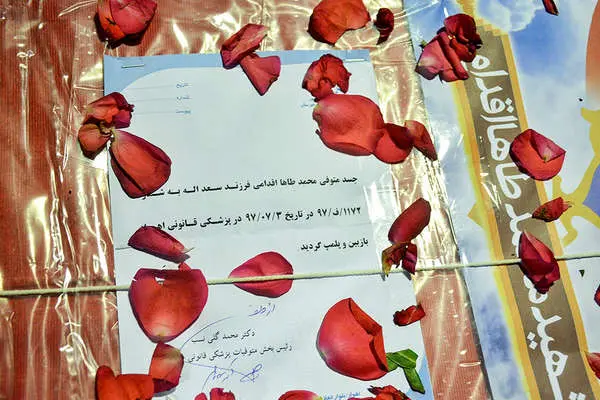 تاریخ
شماره
پیوست
جسد متوفی محمد طاها اقدامی فرزند سعد اله به
۱۱۷۲/ف/۹۷ در تاریخ ۹۷/۰۷/۳ در پزشکی قانونی
بازبین و پلمپ گردید
دکتر محمد گلی نسب
رئیس بخش متوفیات پزشکی قانونی
طاها اقدام